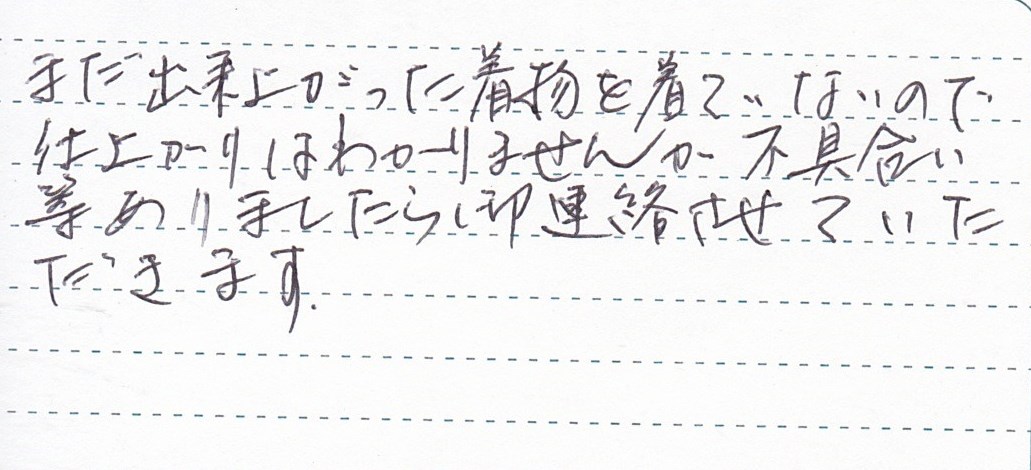 まだ出来上がった着物を着ていないので
仕上がりはわかりませんが不具合い
等ありましたら御連絡させていた
だきます.